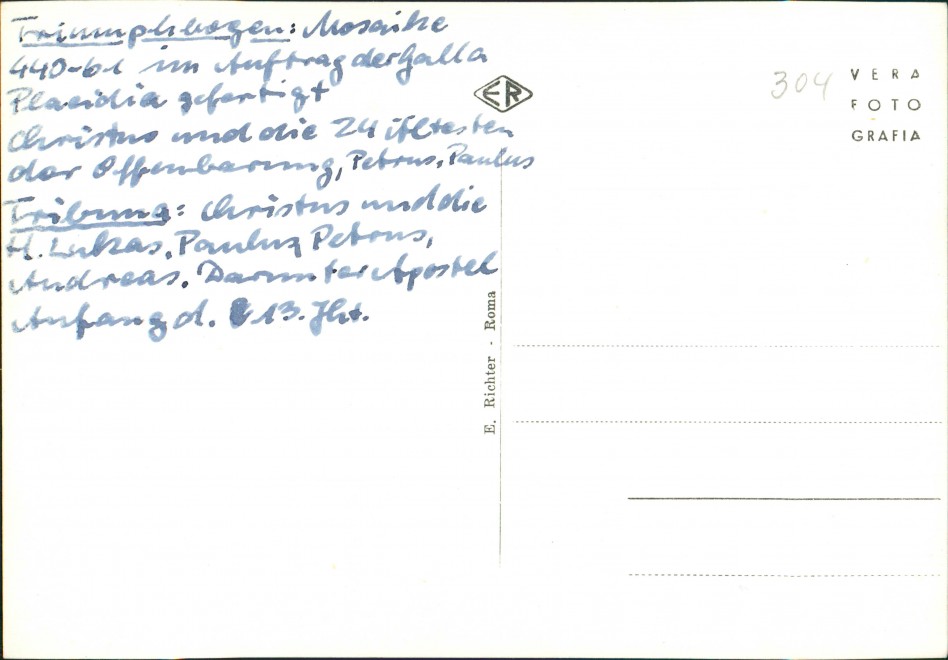 Triumphbogen: Mosaike
440-61 im Auftrag der Galla
Placidia gefertigt
Christus und die 24 Ältesten
der Offenbarung, Petrus, Paulus
Tribuna: Christus und die
H. Lukas, Paulus, Petrus,
Andreas. Darunter Apostel
Anfang d. 13. Jht.
ER
304
VERA
FOTO
GRAFIA
E. Richter - Roma